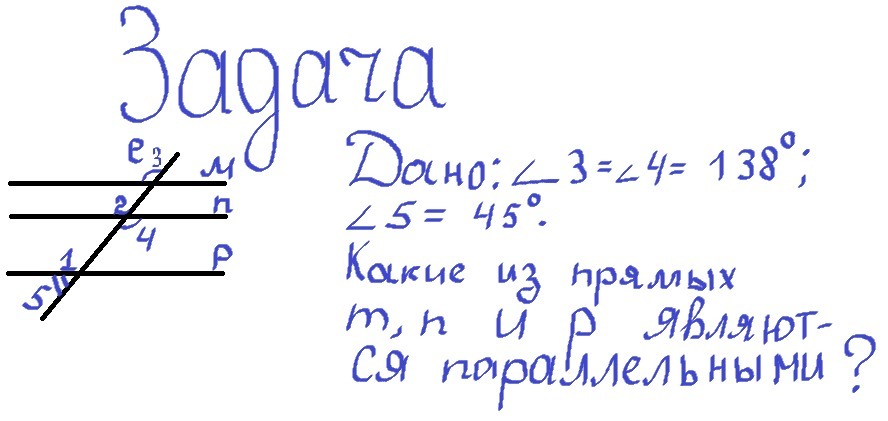 Задача
e 3 м
2 n
4
1 p
5
Дано: ∠3=∠4= 138°;
∠5= 45°.
Какие из прямых
m, n и p являют-
ся параллельными?